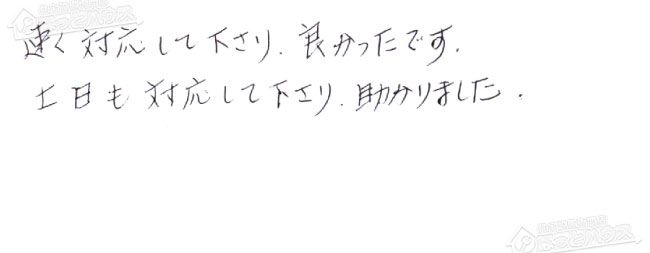 速く対応して下さり、良かったです。
土日も対応して下さり、助かりました。